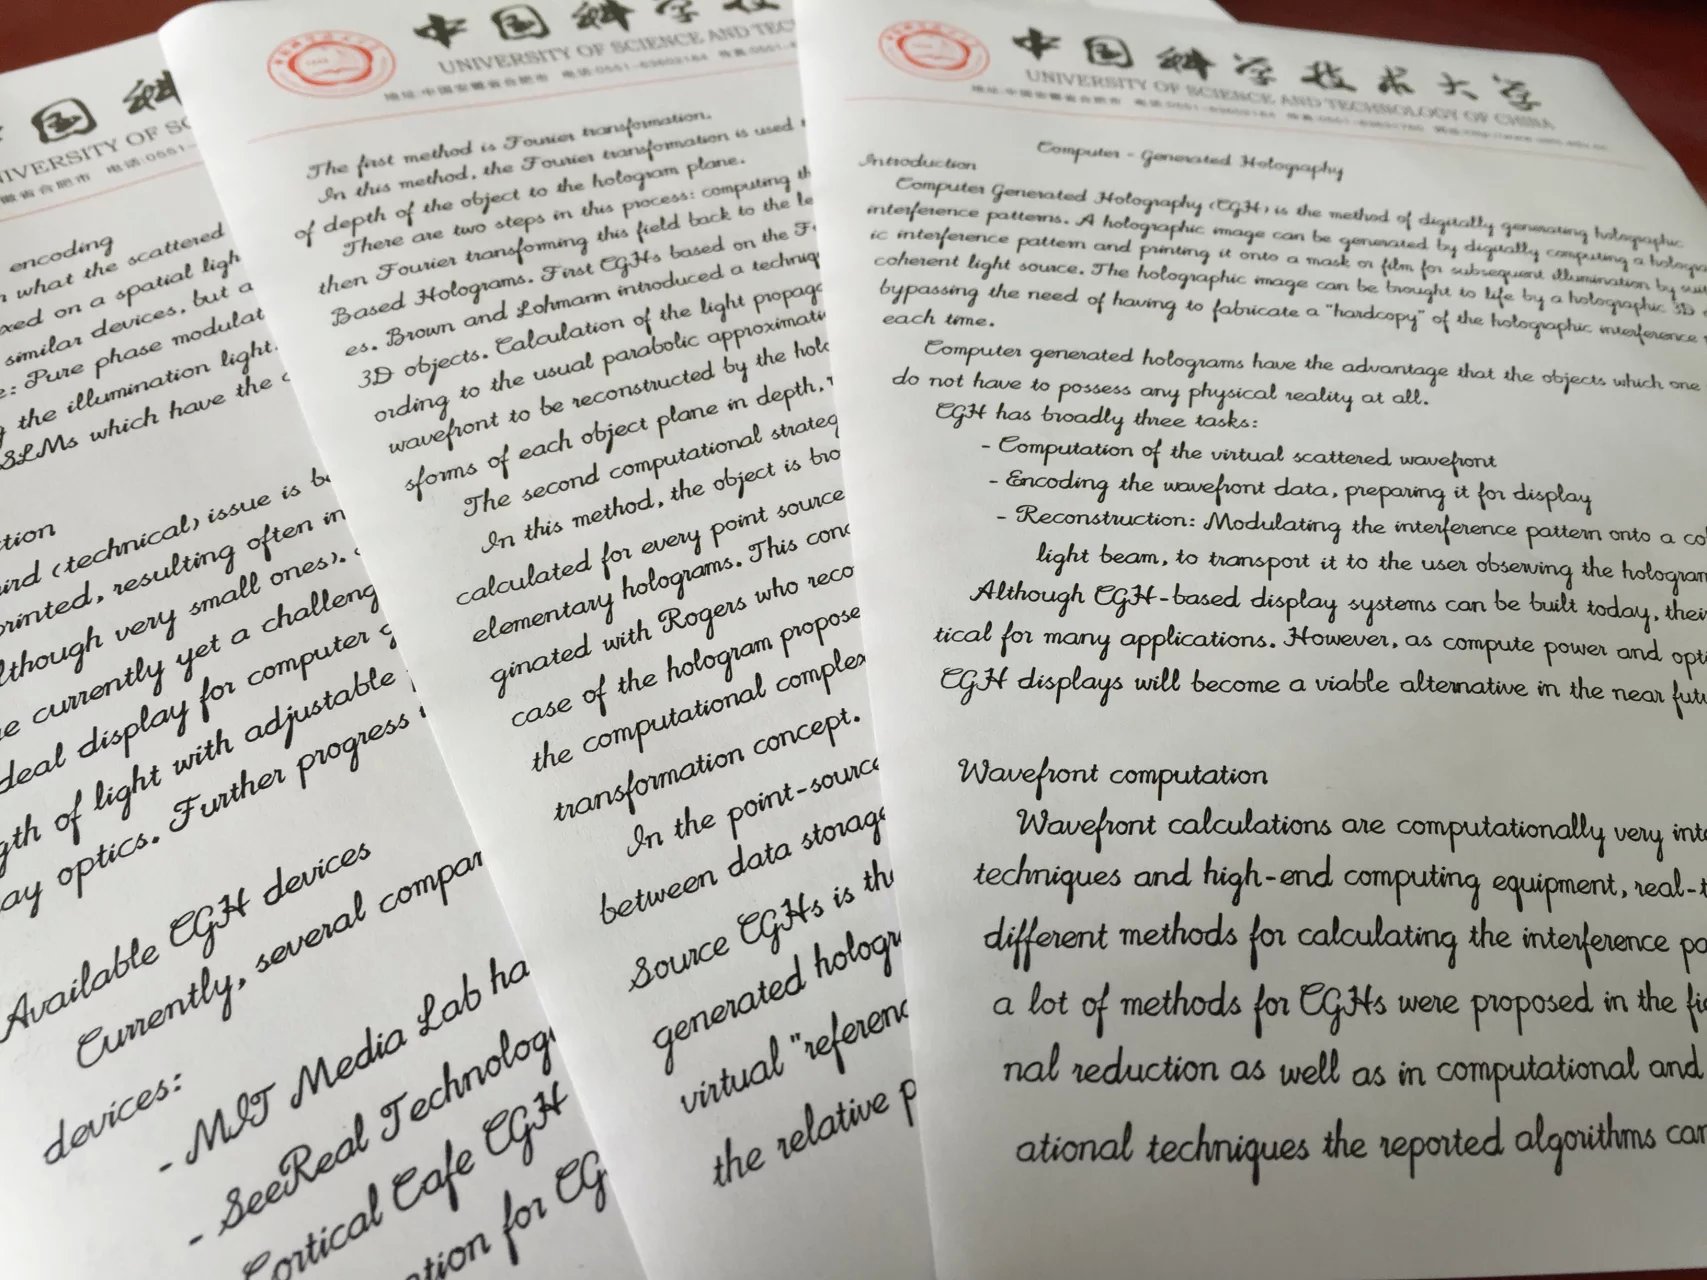 中国科学技术大学
UNIVERSITY OF SCIENCE AND TECHNOLOGY OF CHINA
Computer - Generated Holography
Introduction
Computer Generated Holography (CGH) is the method of digitally generating holographic
interference patterns. A holographic image can be generated by digitally computing a holograph
ic interference pattern and printing it onto a mask or film for subsequent illumination by suit
coherent light source. The holographic image can be brought to life by a holographic 3D
bypassing the need of having to fabricate a "hardcopy" of the holographic interference
each time.
Computer generated holograms have the advantage that the objects which one
do not have to possess any physical reality at all.
CGH has broadly three tasks:
- Computation of the virtual scattered wavefront
- Encoding the wavefront data, preparing it for display
- Reconstruction: Modulating the interference pattern onto a co
light beam, to transport it to the user observing the hologram
Although CGH-based display systems can be built today, their
tical for many applications. However, as compute power and opti
CGH displays will become a viable alternative in the near futu
Wavefront computation
Wavefront calculations are computationally very inte
techniques and high-end computing equipment, real-t
different methods for calculating the interference pa
a lot of methods for CGHs were proposed in the fie
nal reduction as well as in computational and
ational techniques the reported algorithms can
中国科学技
UNIVERSITY OF SCIENCE AND TEC
地址:中国安徽省合肥市 电话:0551-63602184
The first method is Fourier transformation.
In this method, the Fourier transformation is used
of depth of the object to the hologram plane.
There are two steps in this process: computing th
then Fourier transforming this field back to the le
Based Holograms. First CGHs based on the F
es. Brown and Lohmann introduced a techniq
3D objects. Calculation of the light propaga
ording to the usual parabolic approximati
wavefront to be reconstructed by the holo
sforms of each object plane in depth,
The second computational strateg
In this method, the object is bro
calculated for every point source
elementary holograms. This conc
ginated with Rogers who reco
case of the hologram propose
the computational complex
transformation concept.
In the point-source
between data storage
Source CGHs is the
generated hologr
virtual "referenc
the relative p
国科
NIVERSITY OF SC
徽省合肥市 电话:0551-
encoding
what the scattered
xed on a spatial ligh
similar devices, but a
e: Pure phase modulat
the illumination light.
SLMs which have the
tion
ird (technical) issue is be
printed, resulting often in
lthough very small ones).
e currently yet a challeng
deal display for computer g
gth of light with adjustable
ay optics. Further progress
Available CGH devices
Currently, several compan
devices:
- MIT Media Lab ha
- SeeReal Technolog
Cortical Cafe CGH
ation for CG